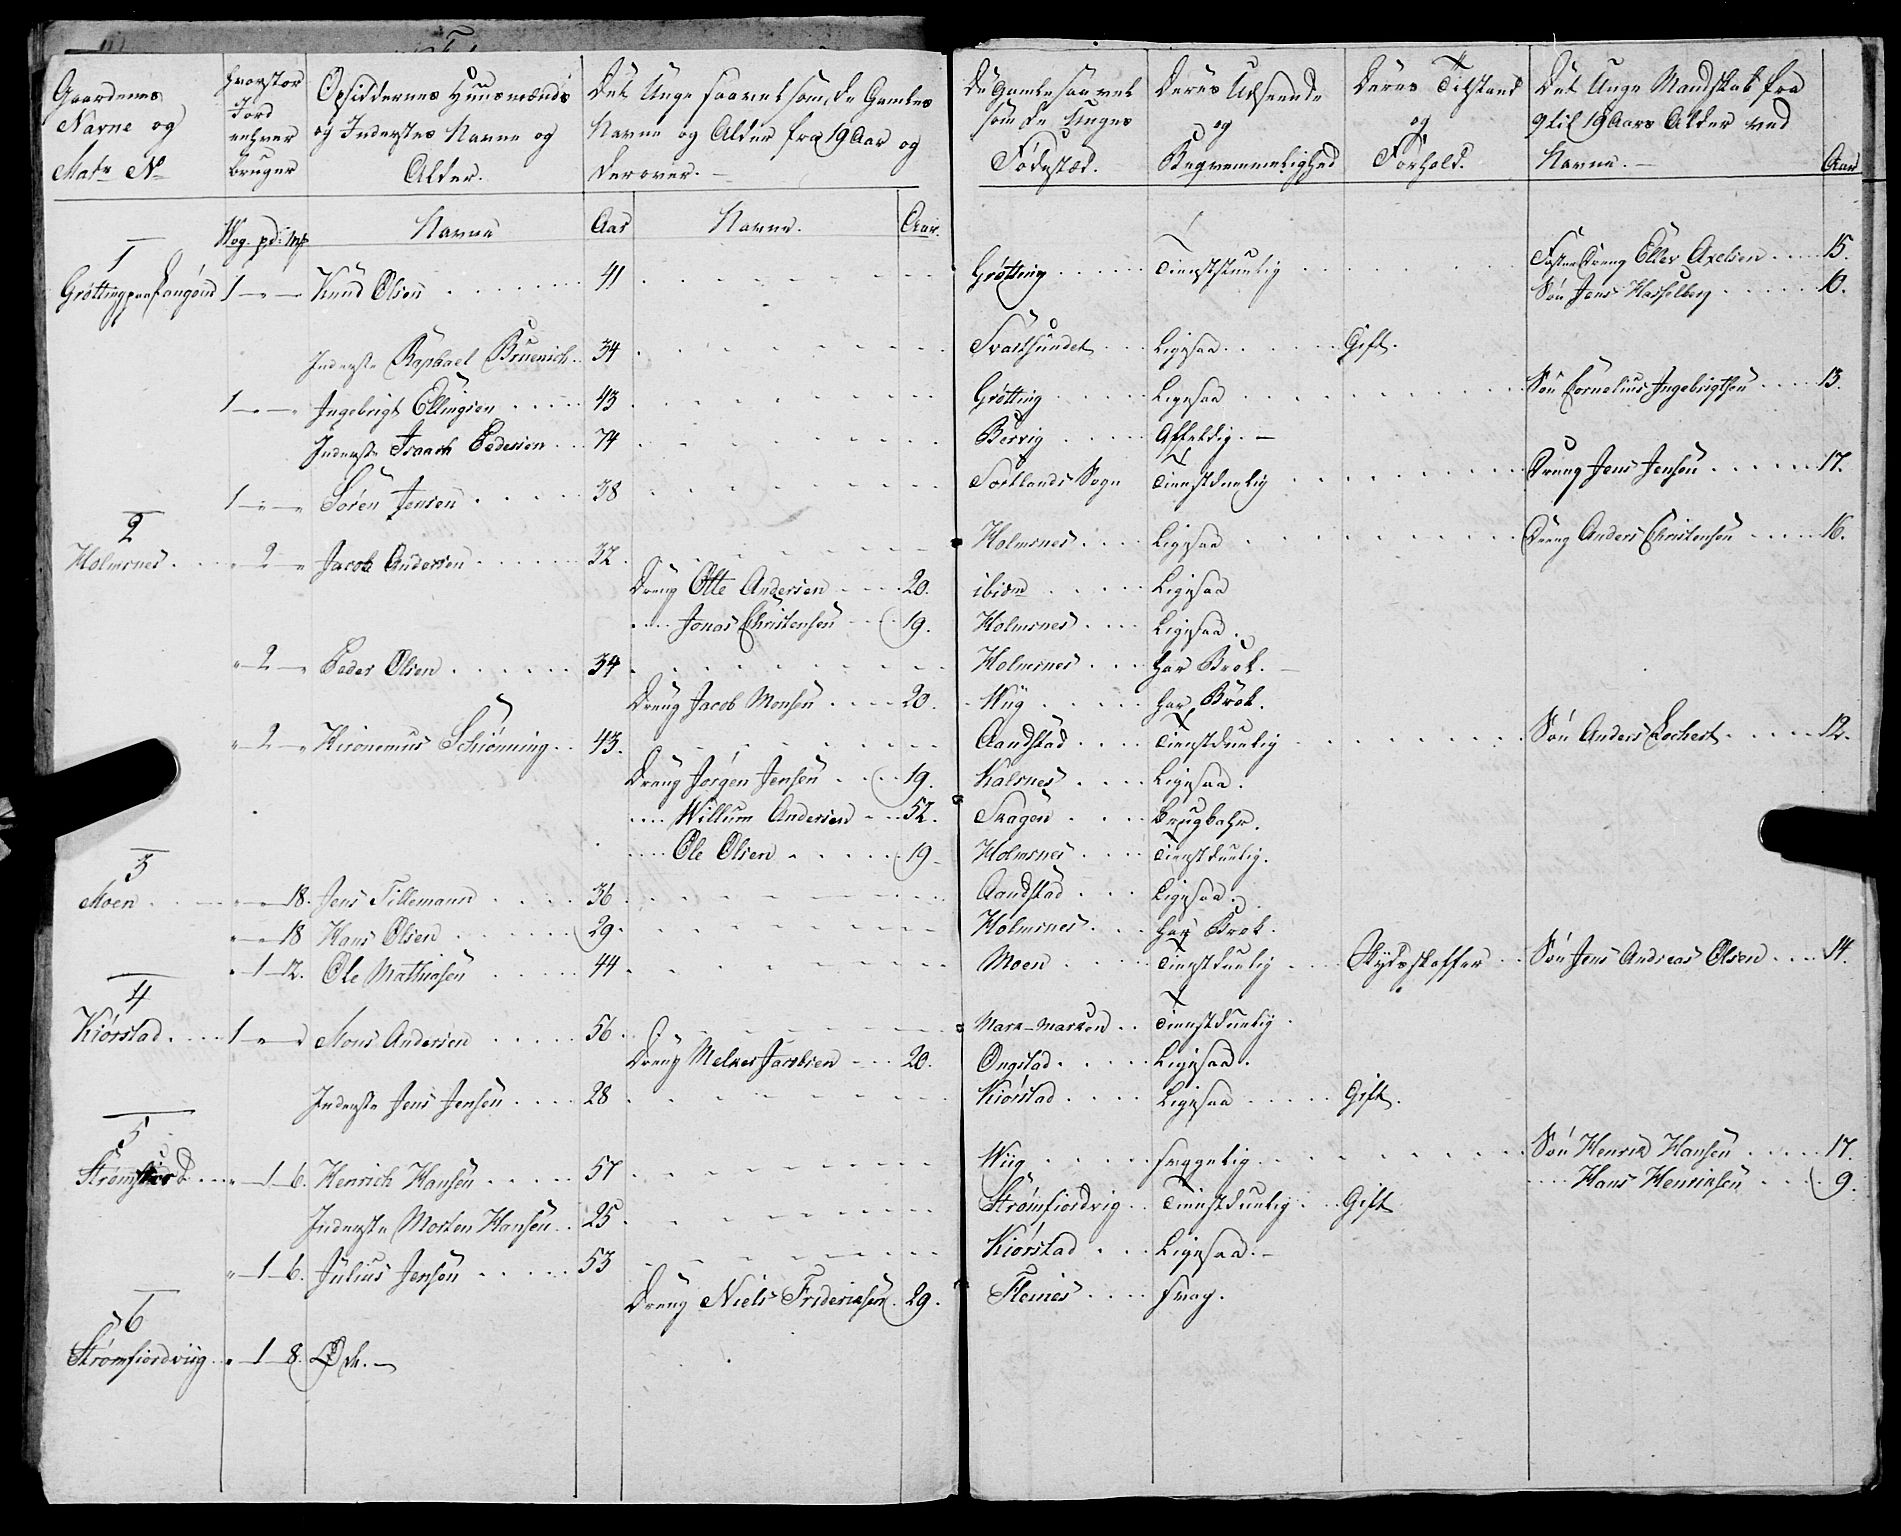 Gaardenes Navne og Matr No
hvorstor Jord enhver bruger
Opsiddernes Huusmænds og Inderstes Navne og Alder.
Det Unge saavel som de Gamles Navne og Alder fra 19 Aar og derover. –
De Gamle saavel som de Unges Fødested.
Deres Udseende og Beqvemmelighed
Deres Tilstand og Forhold.
Det Unge Mandskab fra 9 til 19 Aars Alder ved Navne. –
Aar
Wog. pd: mk
Navne
Aar
Navne.
Aar.
1
Grøtting paa Langøen 1 – „ – Knud Olsen 41 Grøtting Tienstduelig Foster Dreng Eller Axelsen 15.
Søn Jens Hasselberg 10.
Inderste Raphael Bruenich 34 Svartsundet Ligesaa Gift.
1 – „ – „ Ingebrigt Ellingsen 43 Grøtting Ligesaa Søn Cornelius Ingebrigtsen 13.
Inderste Isaach Pedersen 74 Bervig Affeldig. –
1 – „ – „ Søren Jensen 38 Sortlands Sogn Tienstduelig Dreng Jens Jensen 17.
2
Holmsnes „ 2 „ Jacob Andersen 32 Holmsnes Ligesaa Dreng Anders Christensen 16.
Dreng Otte Andersen 20. ibidm Ligesaa
Jonas Christensen 19. Holmsnes Ligesaa.
„ 2 – „ Peder Olsen 34 Holmsnes har Brok. –
Dreng Jacob Monsen 20. Wiig har Brok.
„ 2 – „ Hironemus Schiønning 43. Aandstad Tienstduelig Søn Anders Lochert 12.
Dreng Jørgen Jensen 19. Kalsnes Ligesaa.
Willum Andersen 52. Skagen brugbahr.
Ole Olsen 19. Holmsnes Tienstduelig.
3
Moen „ – „ 18. Jens Tillemann 36 Aandstad Ligesaa.
„ – „ 18 Hans Olsen 29. Holmsnes har Brok.
„ 1 – 12. Ole Mathiasen 44 Moen Tienstduelig Skydsskaffer Søn Jens Andreas Olsen 14.
4
Kiørstad 1 – „ – „ Mons Andersen 56 Mark-marken Tienstduelig.
Dreng Melker Jacobsen 20. Ongstad Ligesaa.
Inderste Jens Jensen 28 Kiørstad Ligesaa Gift.
5
Strømfiord „ 1 – 6. Henrich Hansen 57 Wiig Søn Henrik Hansen 17.
Hans Henriksen 9.
Inderste Morten Hansen 25 Strømfiordvig Tienstduelig Gift
„ 1 – 6. Julius Jensen 53 Kiørstad Ligesaa. –
Dreng Niels Friderichsen 29. Fleines svag.
6
Strømfiordviig „ 1 – 8. Øde. –